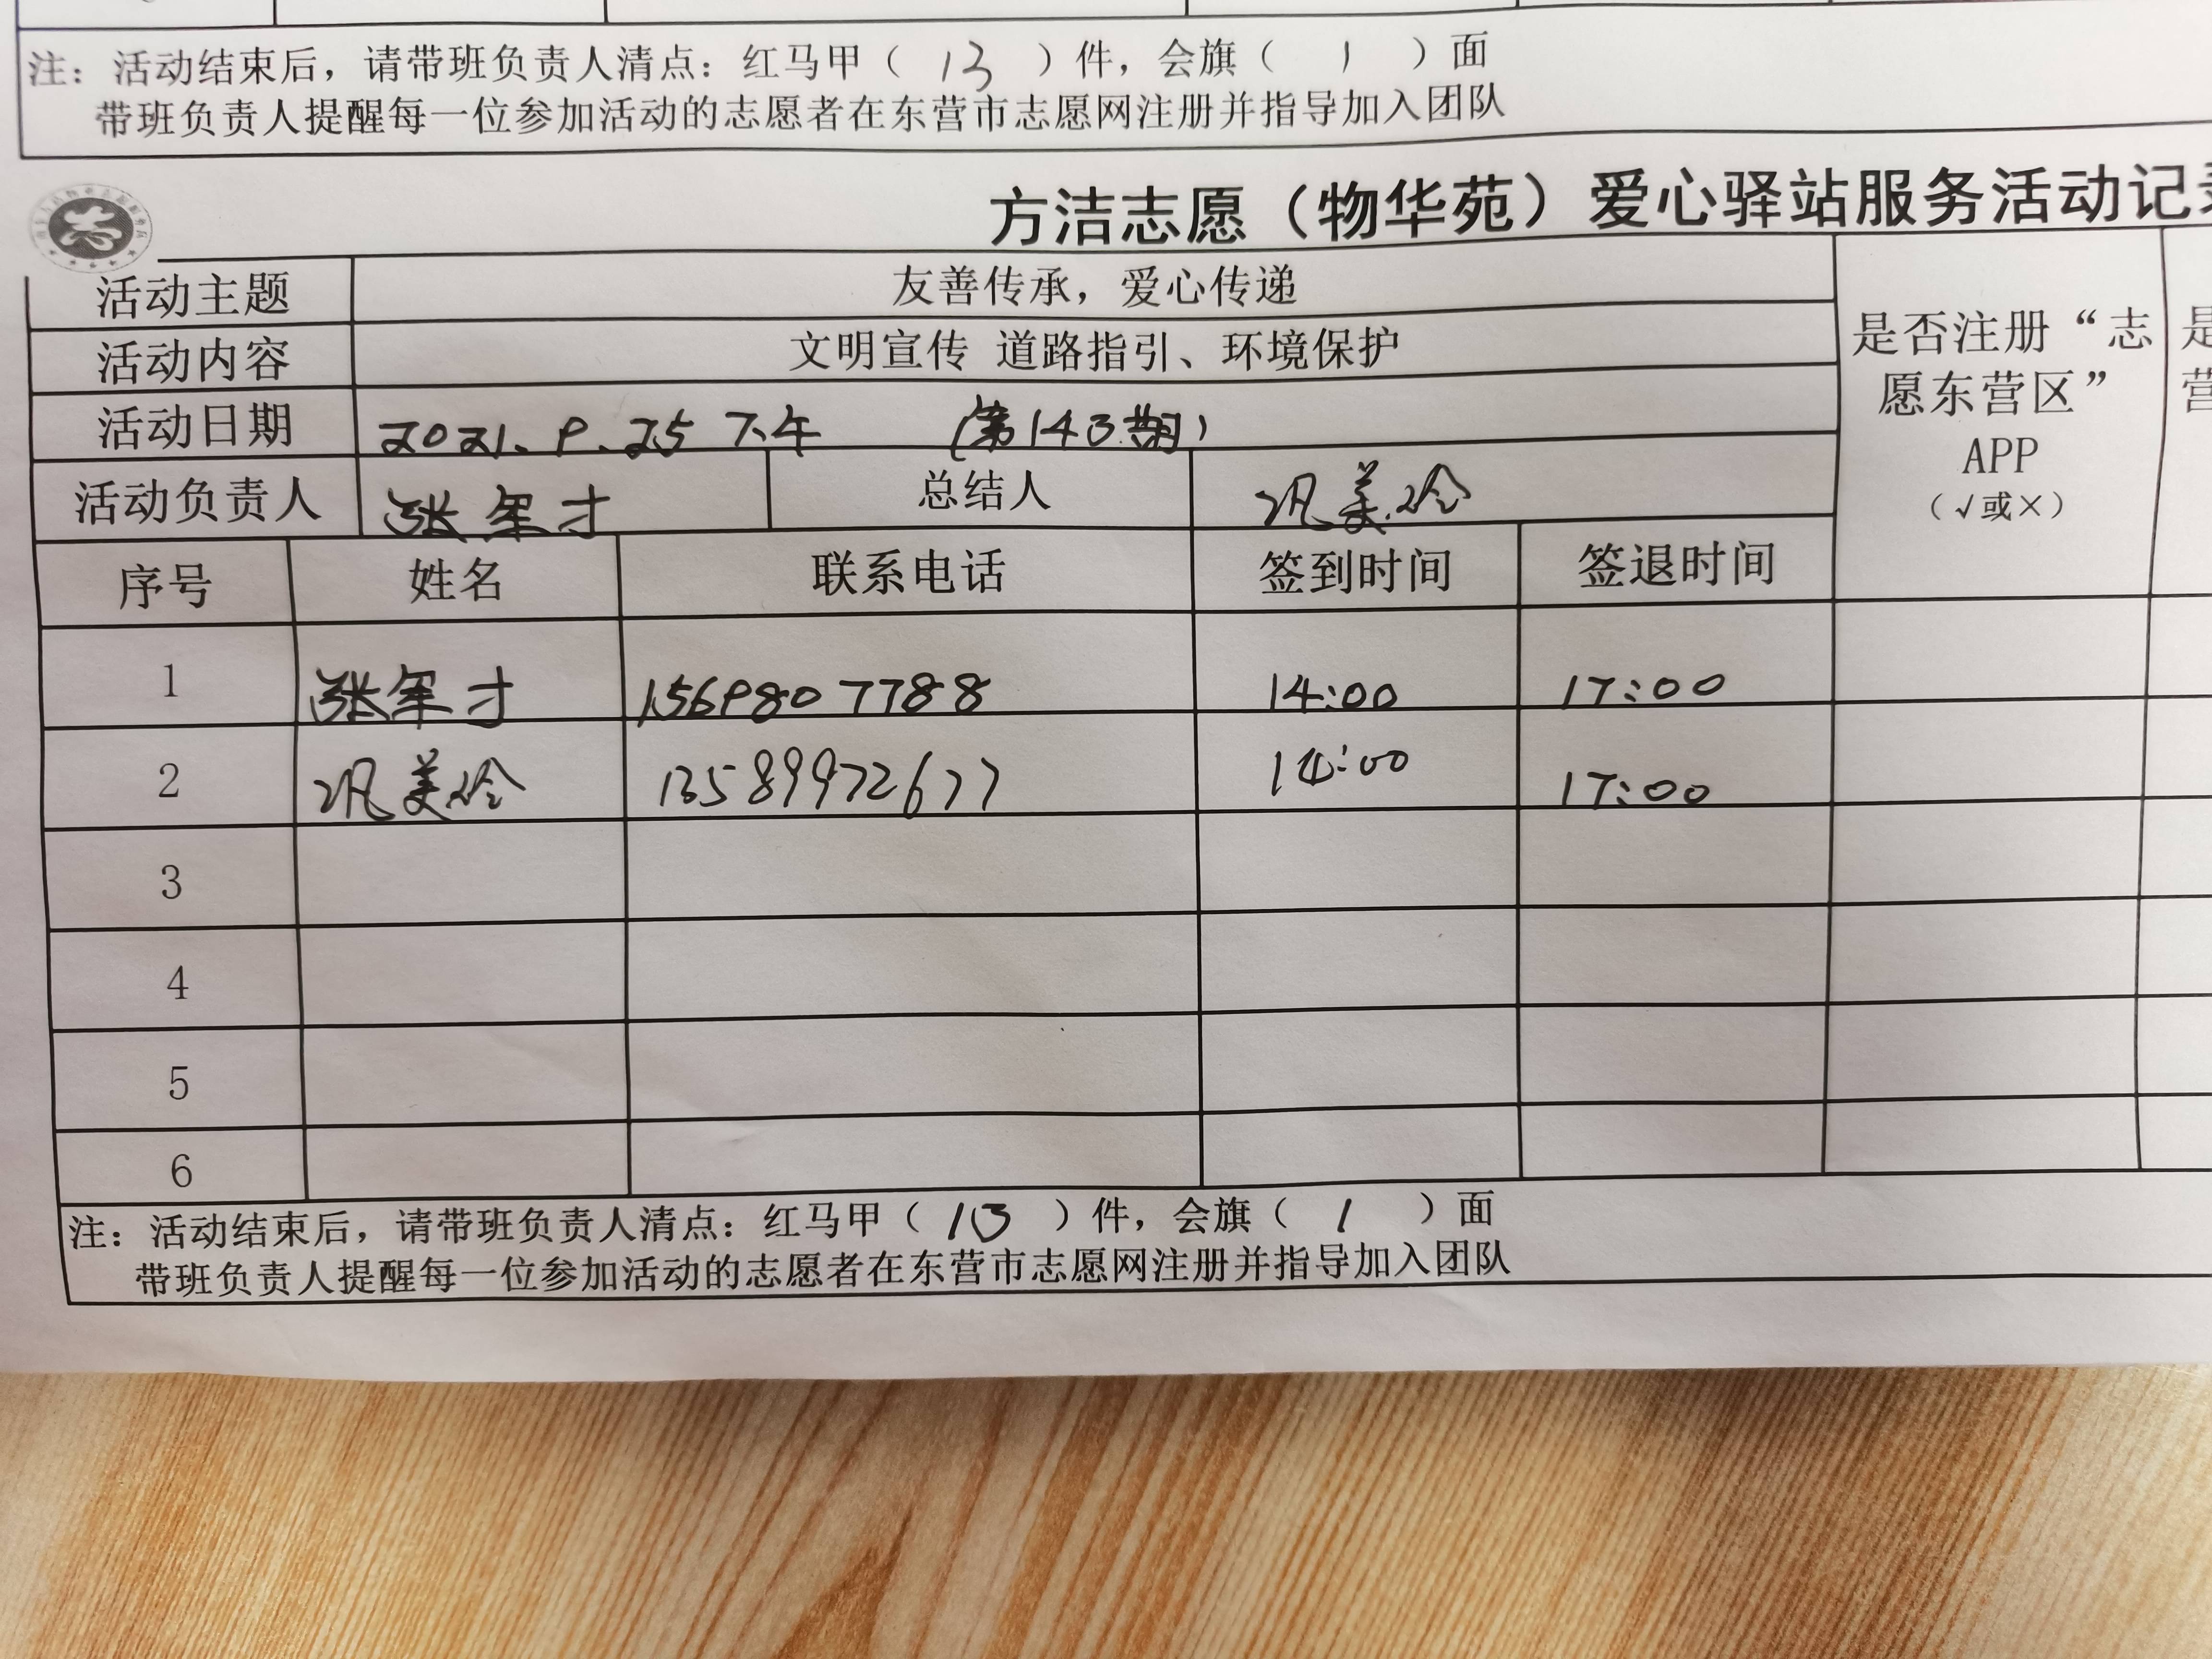 注：活动结束后，请带班负责人清点：红马甲（ 13 ）件，会旗（ 1 ）面
带班负责人提醒每一位参加活动的志愿者在东营市志愿网注册并指导加入团队
方洁志愿（物华苑）爱心驿站服务活动记
活动主题 友善传承，爱心传递
活动内容 文明宣传 道路指引、环境保护
是否注册“志愿东营区”APP（√或×）
活动日期 2021.9.25 下午 （第143期）
活动负责人 张军才 总结人 巩美玲
序号 姓名 联系电话 签到时间 签退时间
1 张军才 1569807788 14:00 17:00
2 巩美玲 13589972677 14:00 17:00
3
4
5
6
注：活动结束后，请带班负责人清点：红马甲（ 13 ）件，会旗（ 1 ）面
带班负责人提醒每一位参加活动的志愿者在东营市志愿网注册并指导加入团队